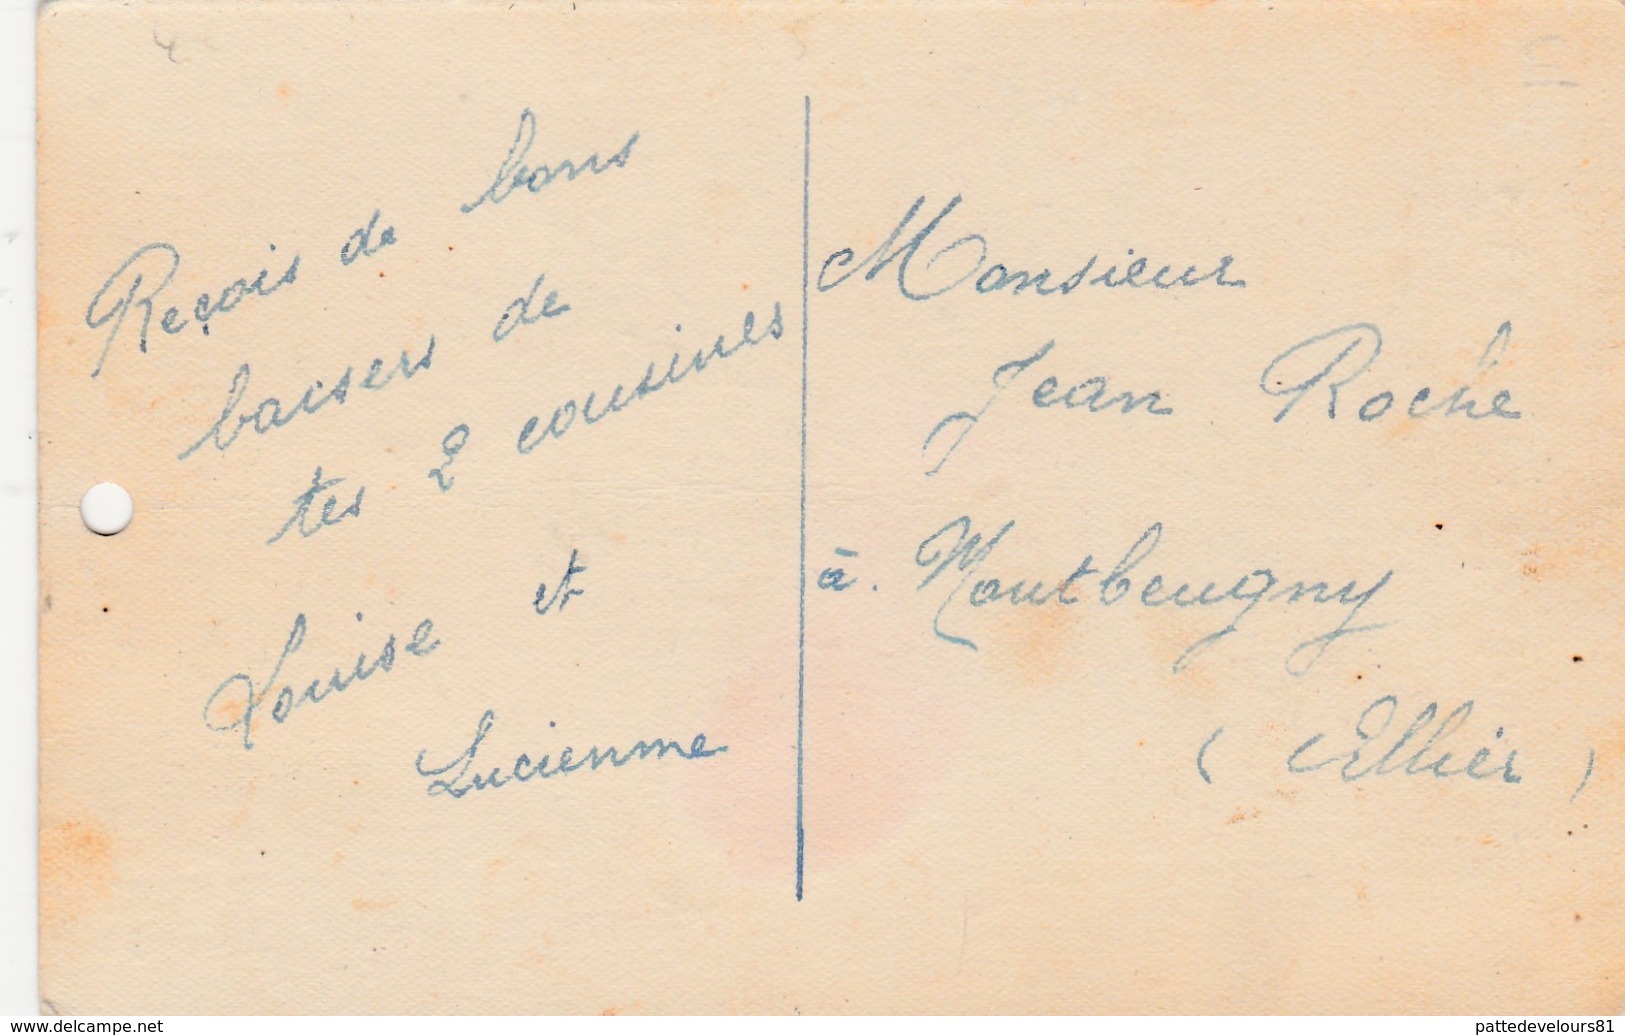 Reçois de bons
baisers de
tes 2 cousines
Louise et
Lucienne
Monsieur
Jean Roche
à. Montbeugny
(Allier)
www.delcampe.net
pattedevelours81